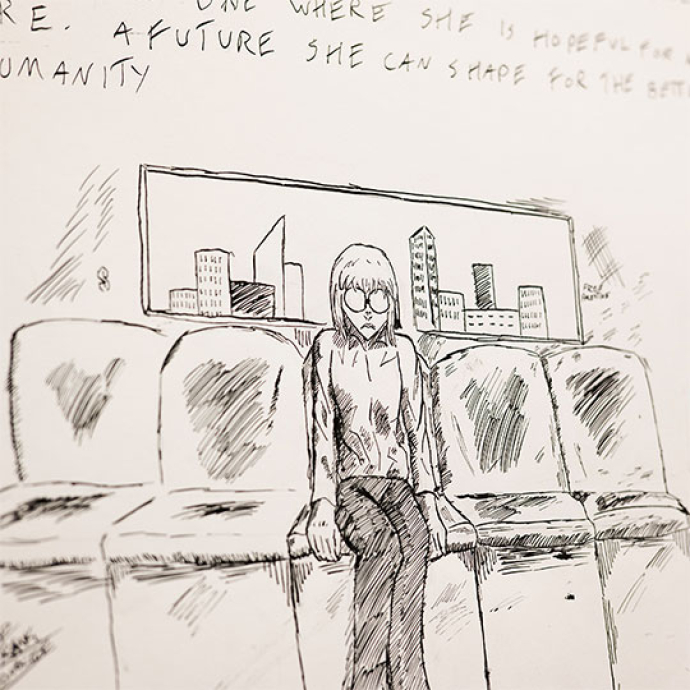 RE. ONE WHERE SHE IS HOPEFUL FOR
A FUTURE SHE CAN SHAPE FOR THE
UMANITY